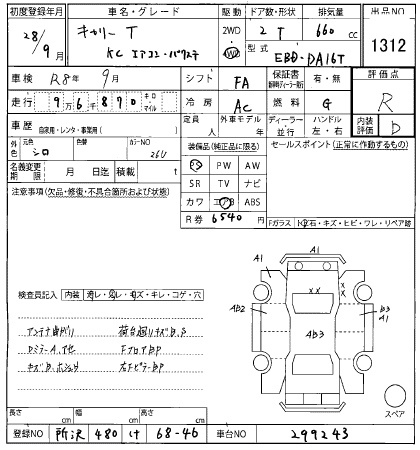 初度登録年月 車名・グレード 駆動 ドア数・形状 排気量 出品NO
28/9月 キャリーT 2WD 2 T 660 cc 1312
KC エアコン・パワステ 4WD 型式 EBD-DA16T
車検 R8年 9月 シフト FA 保証書 有・無 評価点
走行 9万6千870 キロ・マイル 冷房 AC 燃料 G R
車歴 自家用・レンタ・事業用( ) 定員 人 外車モデル 年 ディーラー・並行 ハンドル 左・右 内装評価 D
色 元色 シロ 色替 カラーNO 26U 装備品(純正品に限る) セールスポイント(正常に作動するもの)
名義変更期限 月 日迄 積載 t PS PW AW
注意事項(欠品・修復・不具合箇所および状態) SR TV ナビ
カワ エアB ABS
R券 6540円 Fガラス 飛石・キズ・ヒビ・ワレ・リペア跡
A1
A1
検査員記入 内装 汚レ・スレ・キズ・キレ・コゲ・穴 X X
AB2 AB3 B3
A1
アンテナ曲がり 荷台廻りキズB、S
DミラーA、ナセ FフロアBP
キズB、ホシュウ 右FピラーBP
スペア
長さ cm 幅 cm 高さ cm
登録NO 所沢 480 け 68-46 車台NO 299243